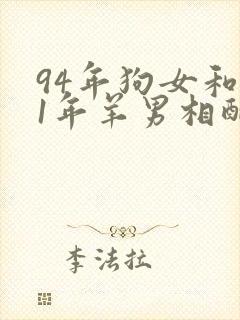 94年狗女和
1年羊男相配
李法拉